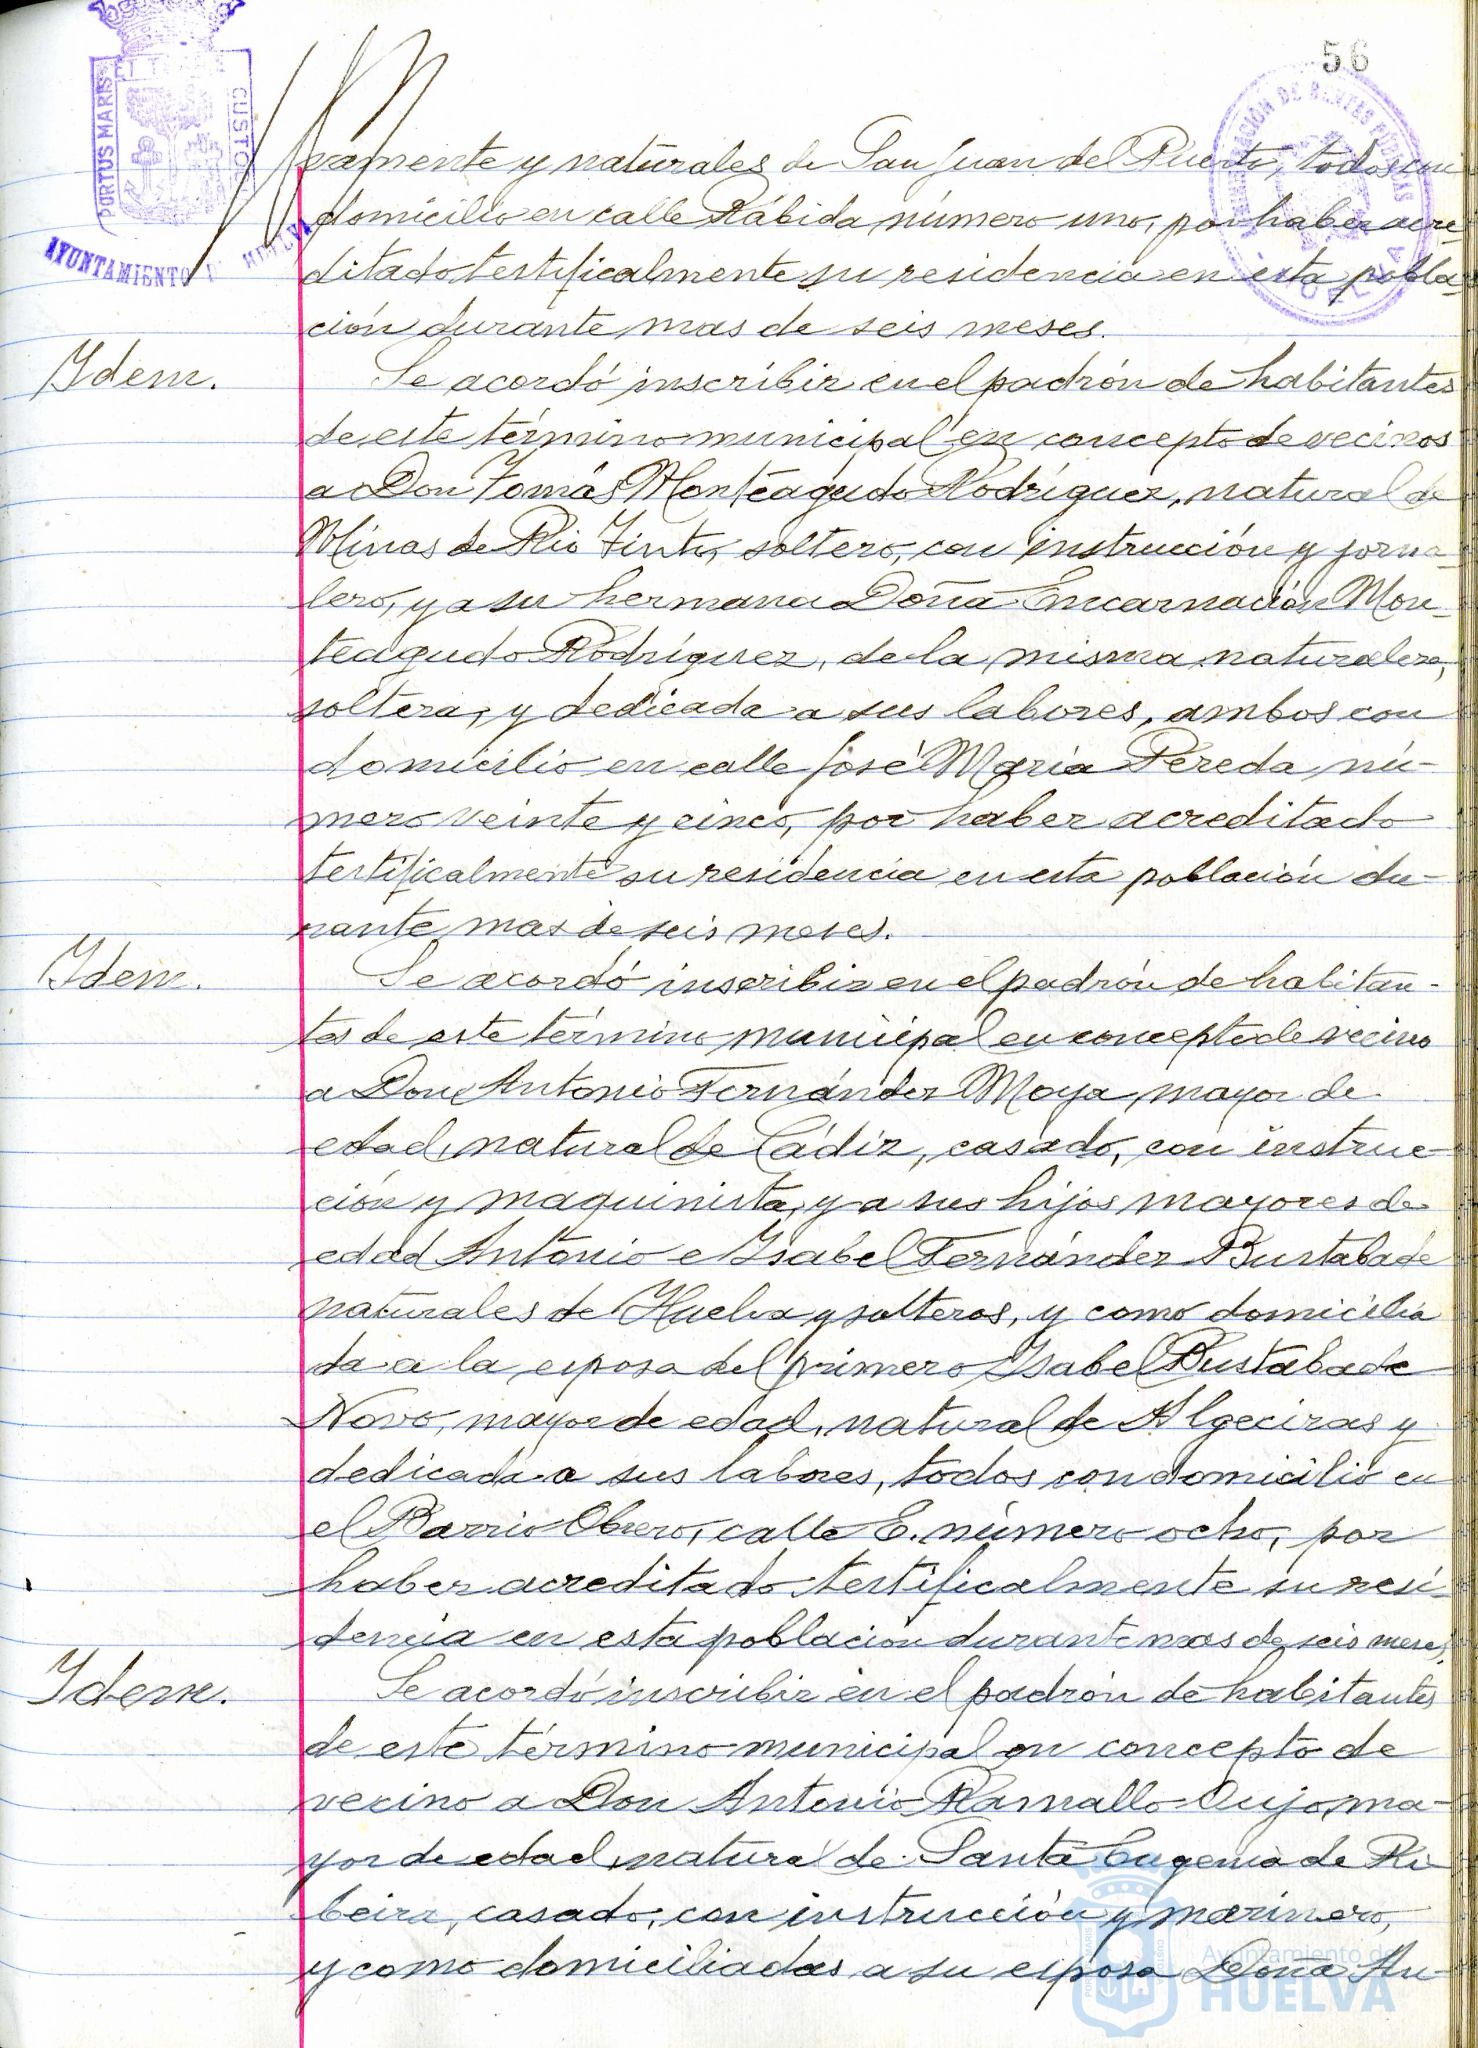 56
PORTUS MARIS ET TERRAE CUSTODIA
AYUNTAMIENTO DE HUELVA
ADMINISTRACIÓN DE RENTAS PÚBLICAS
HUELVA
ramente y naturales de San Juan del Puerto, todos con
domicilio en calle Rábida número uno, por haber acre-
ditado testificalmente su residencia en esta pobla-
ción durante mas de seis meses.
Idem.
Se acordó inscribir en el padrón de habitantes
de este término municipal en concepto de vecinos
a Don Tomás Monteagudo Rodríguez, natural de
Minas de Rio Tinto, soltero, con instrucción y jorna-
lero, y a su hermana Doña Encarnación Mon-
teagudo Rodríguez, de la misma naturaleza,
soltera, y dedicada a sus labores, ambos con
domicilio en calle José María Pereda nú-
mero veinte y cinco, por haber acreditado
testificalmente su residencia en esta población du-
rante mas de seis meses.
Idem.
Se acordó inscribir en el padrón de habitan-
tes de este término municipal en concepto de vecino
a Don Antonio Fernández Moya, mayor de
edad, natural de Cádiz, casado, con instruc-
ción y maquinista, y a sus hijos mayores de
edad Antonio e Isabel Fernández Bustabade
naturales de Huelva y solteros, y como domicilia
da a la esposa del primero Isabel Bustabade
Novo, mayor de edad, natural de Algeciras y
dedicada a sus labores, todos con domicilio en
el Barrio Obrero, calle E. número ocho, por
haber acreditado testificalmente su resi-
dencia en esta población durante mas de seis meses.
Idem.
Se acordó inscribir en el padrón de habitantes
de este término municipal en concepto de
vecino a Don Antonio Ramallo Oujo, ma-
yor de edad, natural de Santa Eugenia de Ri-
beira, casado, con instrucción y marinero,
y como domiciliadas a su esposa Doña Au-
Ayuntamiento de
HUELVA